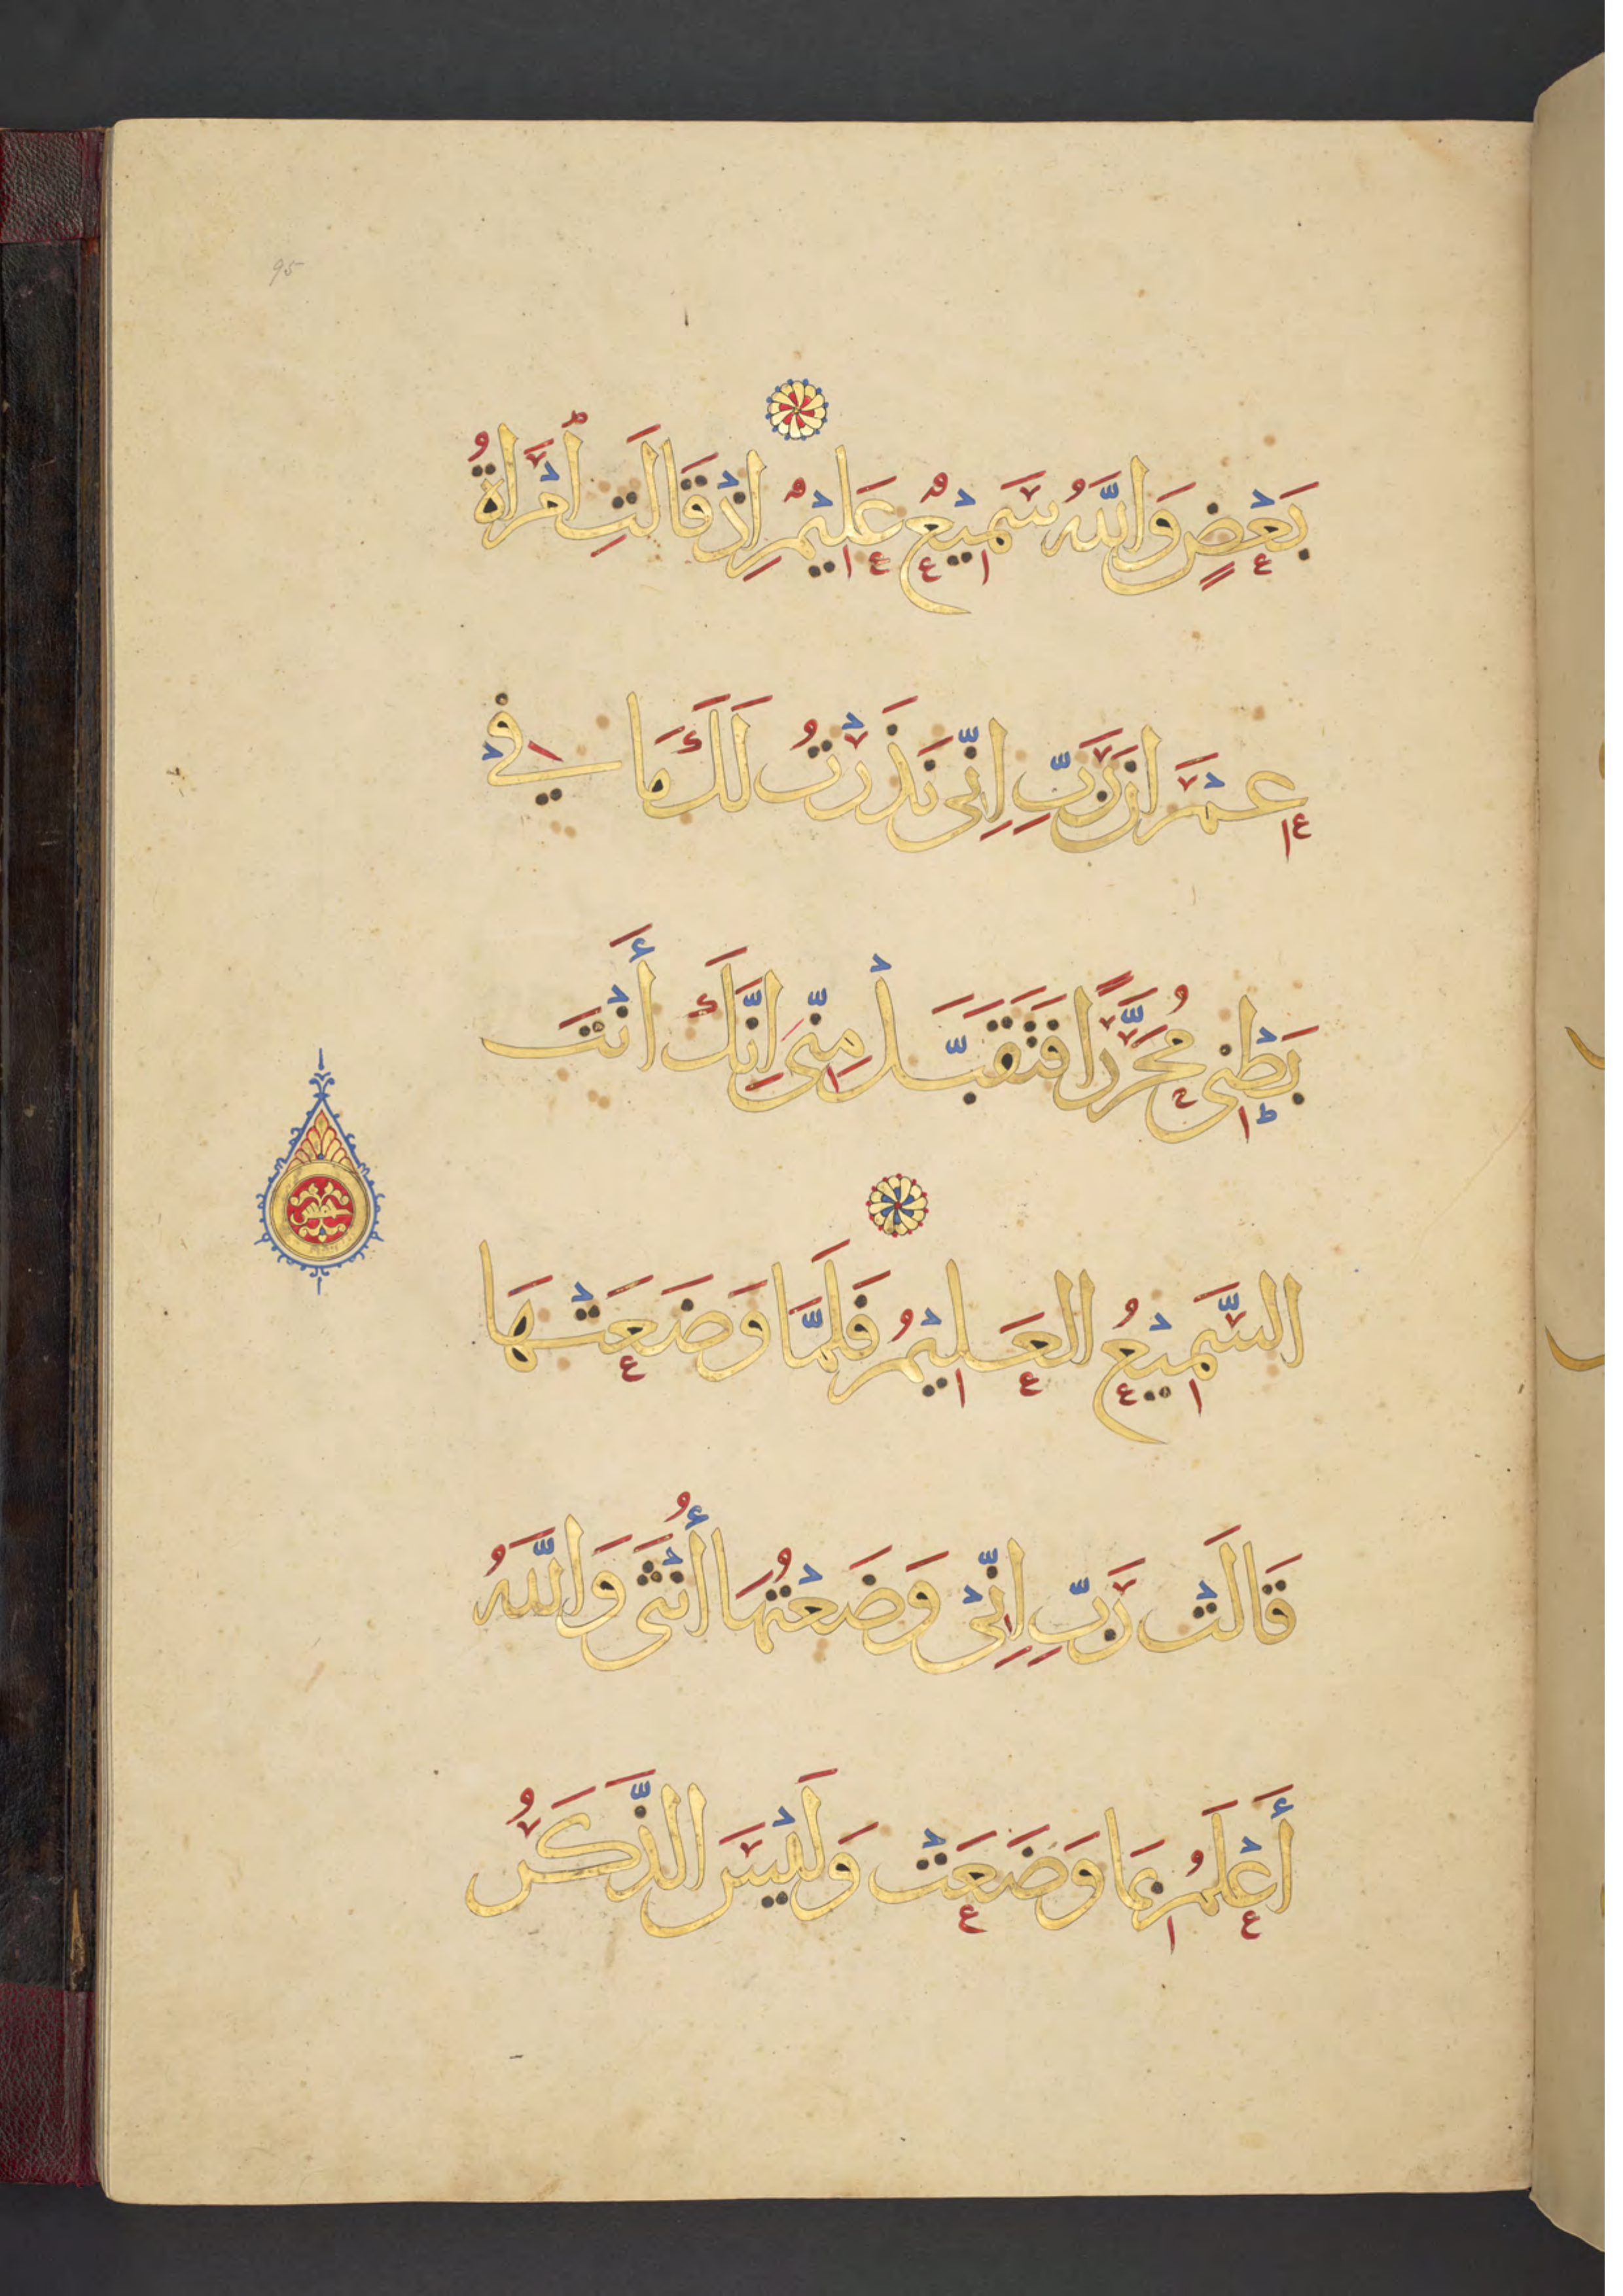 95
بَعْضٍ وَاللَّهُ سَمِيْعٌ عَلِيْمٌ اِذْ قَالَتِ ٱمْرَاَةُ
عِمْرَانَ رَبِّ اِنِّى نَذَرْتُ لَكَ مَا فِيْ
بَطْنِى مُحَرَّرًا فَتَقَبَّلْ مِنِّى اِنَّكَ أَنْتَ
السَّمِيْعُ العَلِيْمُ فَلَمَّا وَضَعَتْهَا
قَالَتْ رَبِّ اِنِّىْ وَضَعْتُهَا أُنْثَى وَاللَّهُ
أَعْلَمُ بِمَا وَضَعَتْ وَلَيْسَ الذَّكَرُ